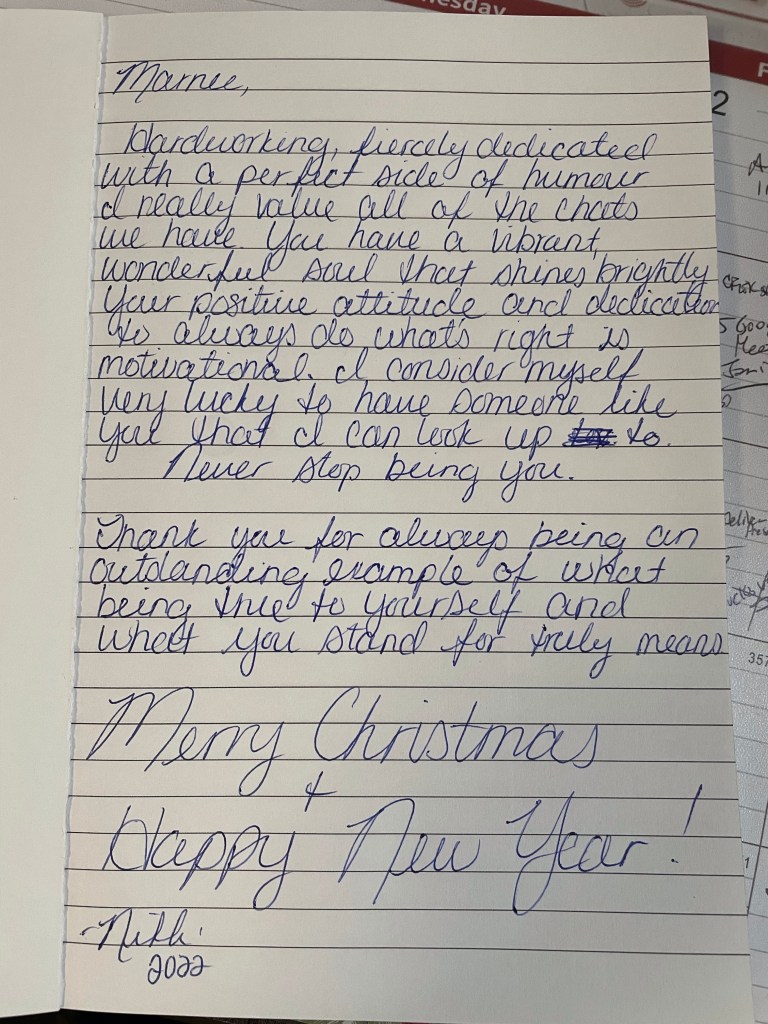 Marnee,
Hardworking, fiercely dedicated
with a perfect side of humour
I really value all of the chats
we have. You have a vibrant,
wonderful soul that shines brightly
Your positive attitude and dedication
to always do what's right is
motivational. I consider myself
very lucky to have someone like
you that I can look up to.
Never stop being you.
Thank you for always being an
outdanding example of what
being true to yourself and
what you stand for truly means
Merry Christmas
+
Happy New Year!
-Nikki
2022
nesday
F
2
357
1